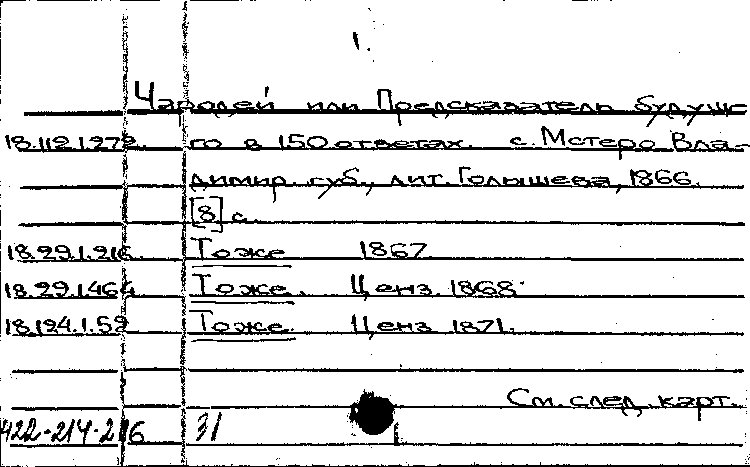 1.
Чародей или Предсказатель будуще-
18.112.1.272. го в 150 ответах. с. Мстеро Вла-
димир. губ., лит. Голышева, 1866.
[8] с.
18.29.1.216. Тоже 1867.
18.29.1.464 Тоже. Ценз. 1868.
18.194.1.52 Тоже. Ценз. 1871.
См. след. карт.
422-214-216 31